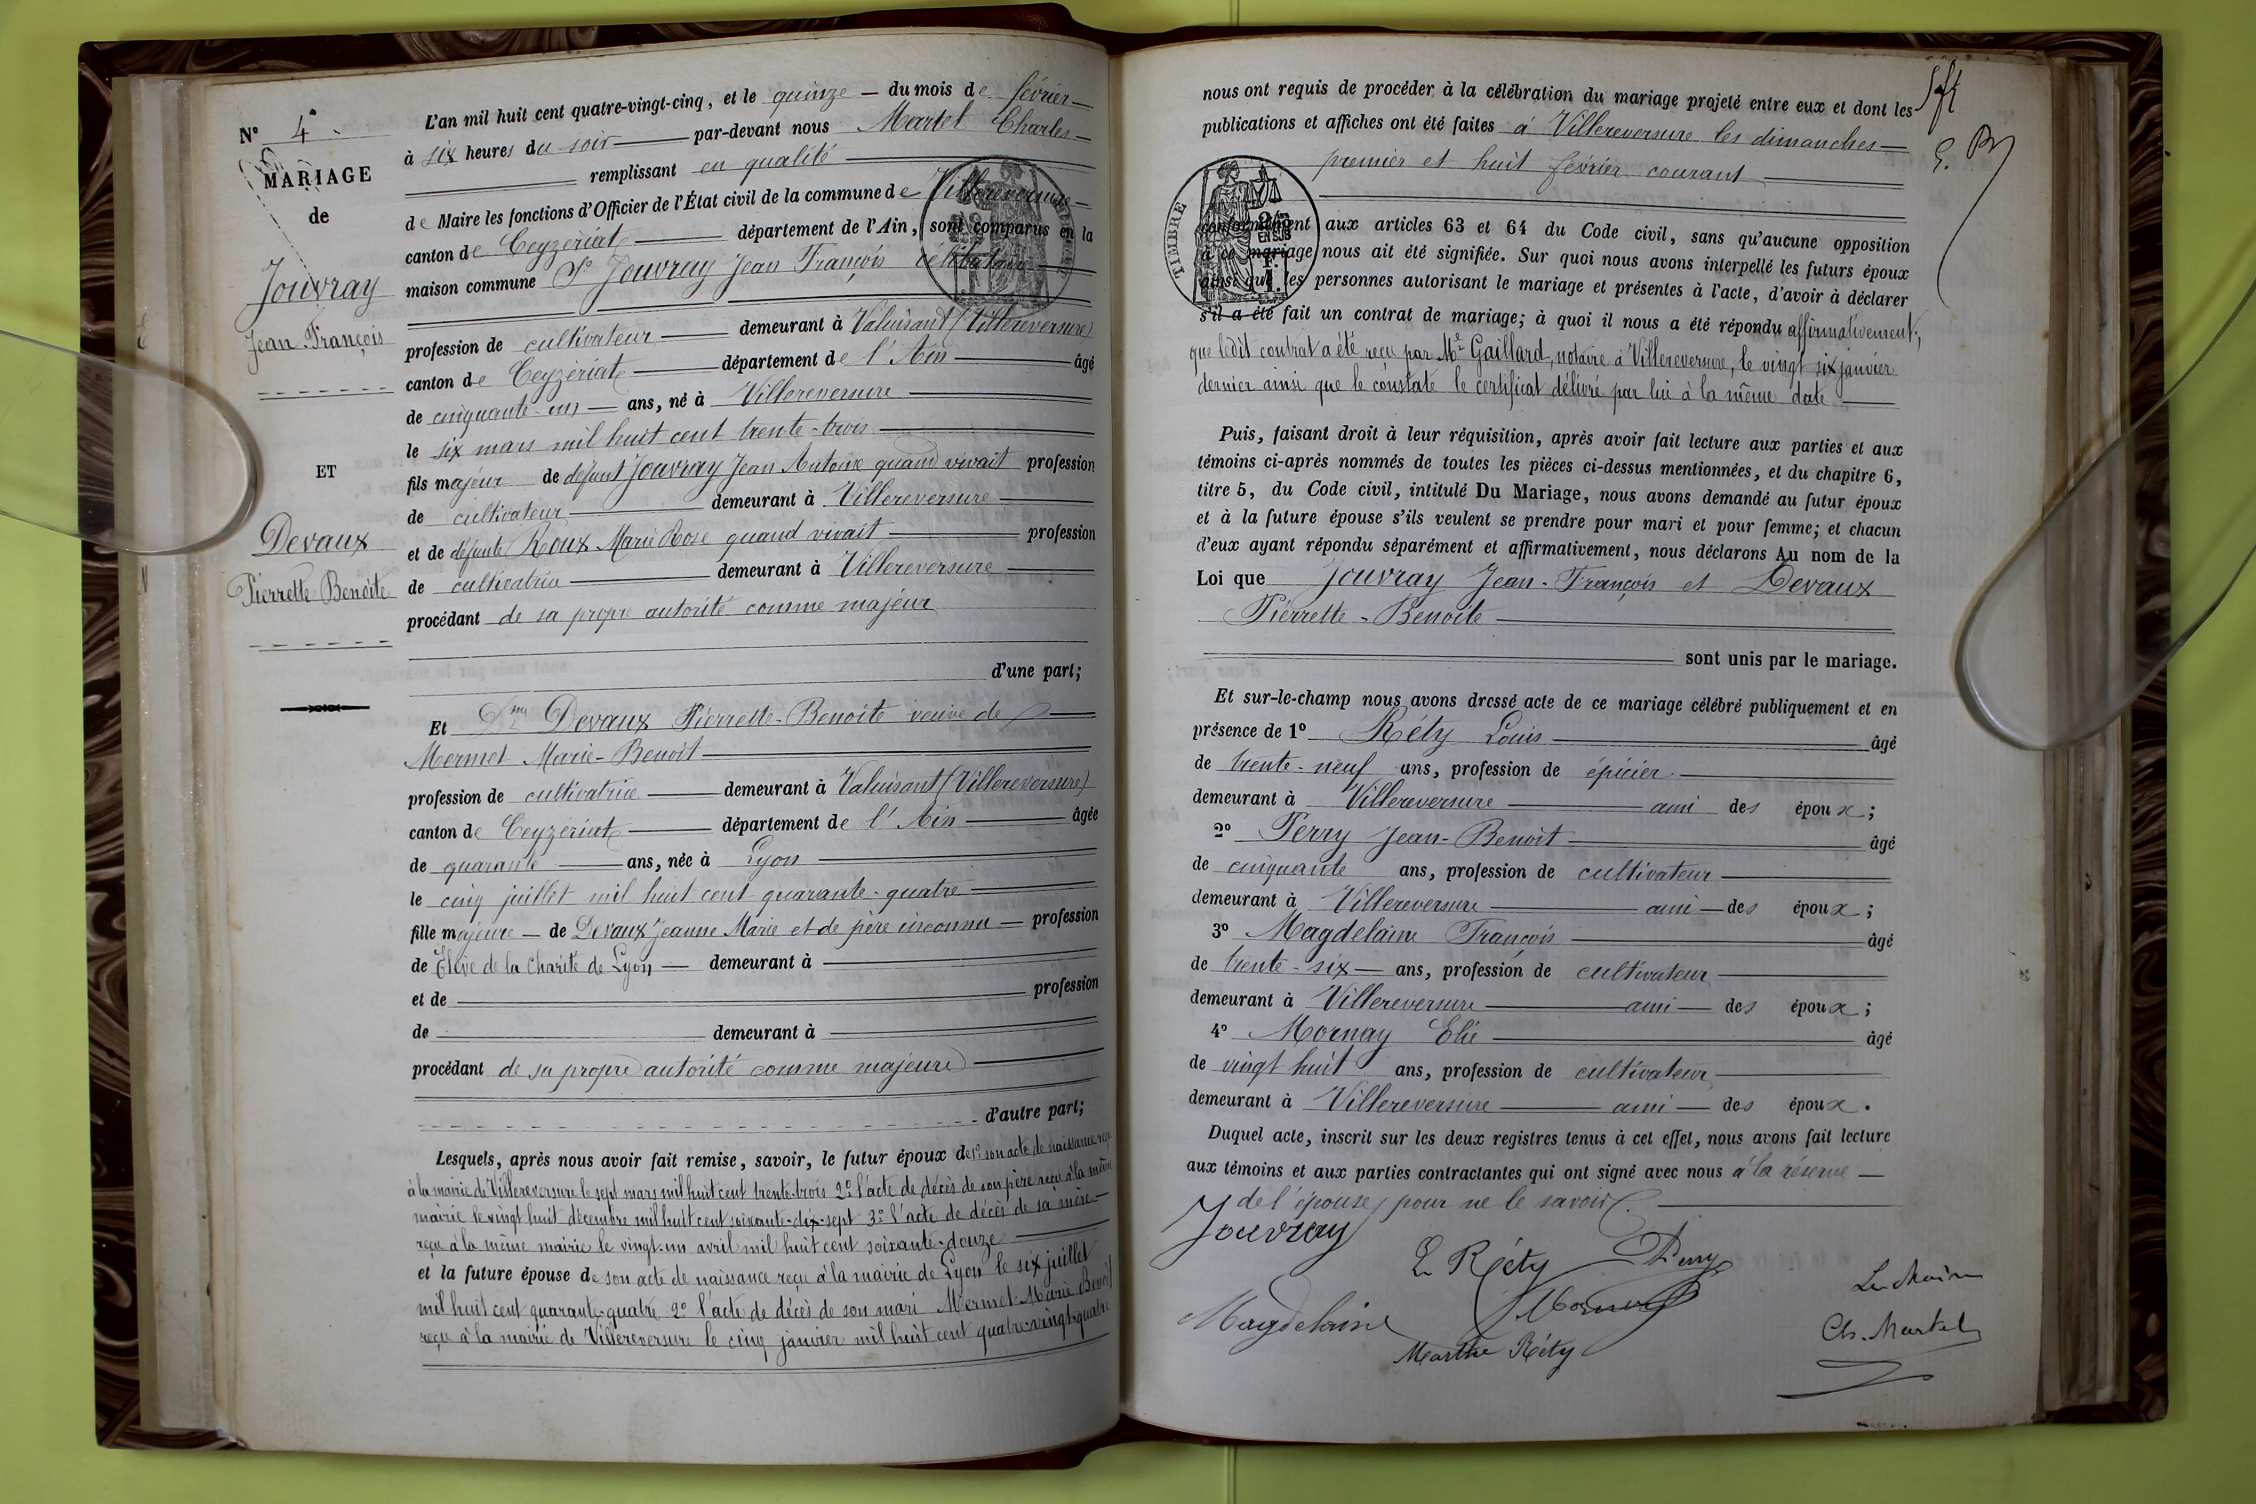 N° 4
MARIAGE
de
Jouvray
Jean François
ET
Devaux
Pierrette Benoite
L'an mil huit cent quatre-vingt-cinq, et le quinze du mois de février
à six heures du soir par-devant nous Martel Charles
remplissant en qualité
de Maire les fonctions d'Officier de l'État civil de la commune de Villereversure
canton de Ceyzériat département de l'Ain, sont comparus en la
maison commune Sr Jouvray Jean François célibataire
profession de cultivateur demeurant à Valuisant (Villereversure)
canton de Ceyzériat département de l'Ain âgé
de cinquante-un ans, né à Villereversure
le six mars mil huit cent trente-trois
fils majeur de défunt Jouvray Jean Antoine quand vivait profession
de cultivateur demeurant à Villereversure
et de défunte Roux Marie Rose quand vivait profession
de cultivatrice demeurant à Villereversure
procédant de sa propre autorité comme majeur
d'une part;
Et Dme Devaux Pierrette-Benoite veuve de
Mermet Marie-Benoit
profession de cultivatrice demeurant à Valuisant (Villereversure)
canton de Ceyzériat département de l'Ain âgée
de quarante ans, née à Lyon
le cinq juillet mil huit cent quarante-quatre
fille majeure de Devaux Jeanne Marie et de père inconnu profession
de Elève de la Charité de Lyon demeurant à
et de profession
de demeurant à
procédant de sa propre autorité comme majeure
d'autre part;
Lesquels, après nous avoir fait remise, savoir, le futur époux de 1° son acte de naissance reçu
à la mairie de Villereversure le sept mars mil huit cent trente-trois 2° l'acte de décès de son père reçu à la même
mairie le vingt huit décembre mil huit cent soixante-dix-sept 3° l'acte de décès de sa mère
reçu à la même mairie le vingt-un avril mil huit cent soixante-douze
et la future épouse de son acte de naissance reçu à la mairie de Lyon le six juillet
mil huit cent quarante-quatre 2° l'acte de décès de son mari Mermet Marie Benoit
reçu à la mairie de Villereversure le cinq janvier mil huit cent quatre-vingt-quatre
nous ont requis de procéder à la célébration du mariage projeté entre eux et dont les
publications et affiches ont été faites à Villereversure les dimanches
premier et huit février courant
TIMBRE
conformément aux articles 63 et 64 du Code civil, sans qu'aucune opposition
à ce mariage nous ait été signifiée. Sur quoi nous avons interpellé les futurs époux
ainsi que les personnes autorisant le mariage et présentes à l'acte, d'avoir à déclarer
s'il a été fait un contrat de mariage; à quoi il nous a été répondu affirmativement,
que ledit contrat a été reçu par Me Gaillard, notaire à Villereversure, le vingt six janvier
dernier ainsi que le constate le certificat délivré par lui à la même date
Puis, faisant droit à leur réquisition, après avoir fait lecture aux parties et aux
témoins ci-après nommés de toutes les pièces ci-dessus mentionnées, et du chapitre 6,
titre 5, du Code civil, intitulé Du Mariage, nous avons demandé au futur époux
et à la future épouse s'ils veulent se prendre pour mari et pour femme; et chacun
d'eux ayant répondu séparément et affirmativement, nous déclarons Au nom de la
Loi que Jouvray Jean-François et Devaux
Pierrette-Benoite
sont unis par le mariage.
Et sur-le-champ nous avons dressé acte de ce mariage célébré publiquement et en
présence de 1° Réty Louis âgé
de trente-neuf ans, profession de épicier
demeurant à Villereversure ami des époux;
2° Perry Jean-Benoit âgé
de cinquante ans, profession de cultivateur
demeurant à Villereversure ami des époux;
3° Magdelaine François âgé
de trente-six ans, profession de cultivateur
demeurant à Villereversure ami des époux;
4° Mornay Elie âgé
de vingt huit ans, profession de cultivateur
demeurant à Villereversure ami des époux.
Duquel acte, inscrit sur les deux registres tenus à cet effet, nous avons fait lecture
aux témoins et aux parties contractantes qui ont signé avec nous à la réserve
de l'épouse pour ne le savoir.
Jouvray
L Réty Perry
Le Maire
Magdelaine Mornay
Ch. Martel
Marthe Réty